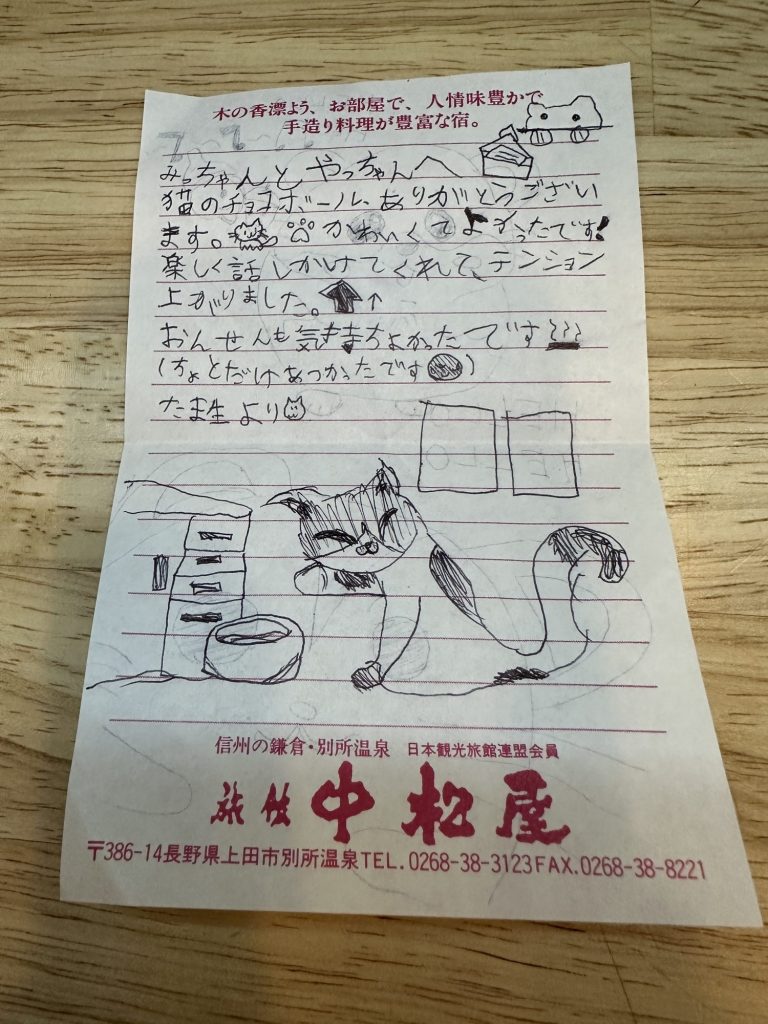 木の香漂よう、お部屋で、人情味豊かで
手造り料理が豊富な宿。
みっちゃんと やっちゃんへ
猫のチョコボール、ありがとうござい
ます。かわいくてよかったです!
楽しく話しかけてくれして、テンション
上がりました。↑
おんせんも気もちよかったです
(ちょとだけあつかったです)
たま生より
信州の鎌倉・別所温泉 日本観光旅館連盟会員
旅館 中松屋
〒386-14長野県上田市別所温泉TEL.0268-38-3123FAX.0268-38-8221